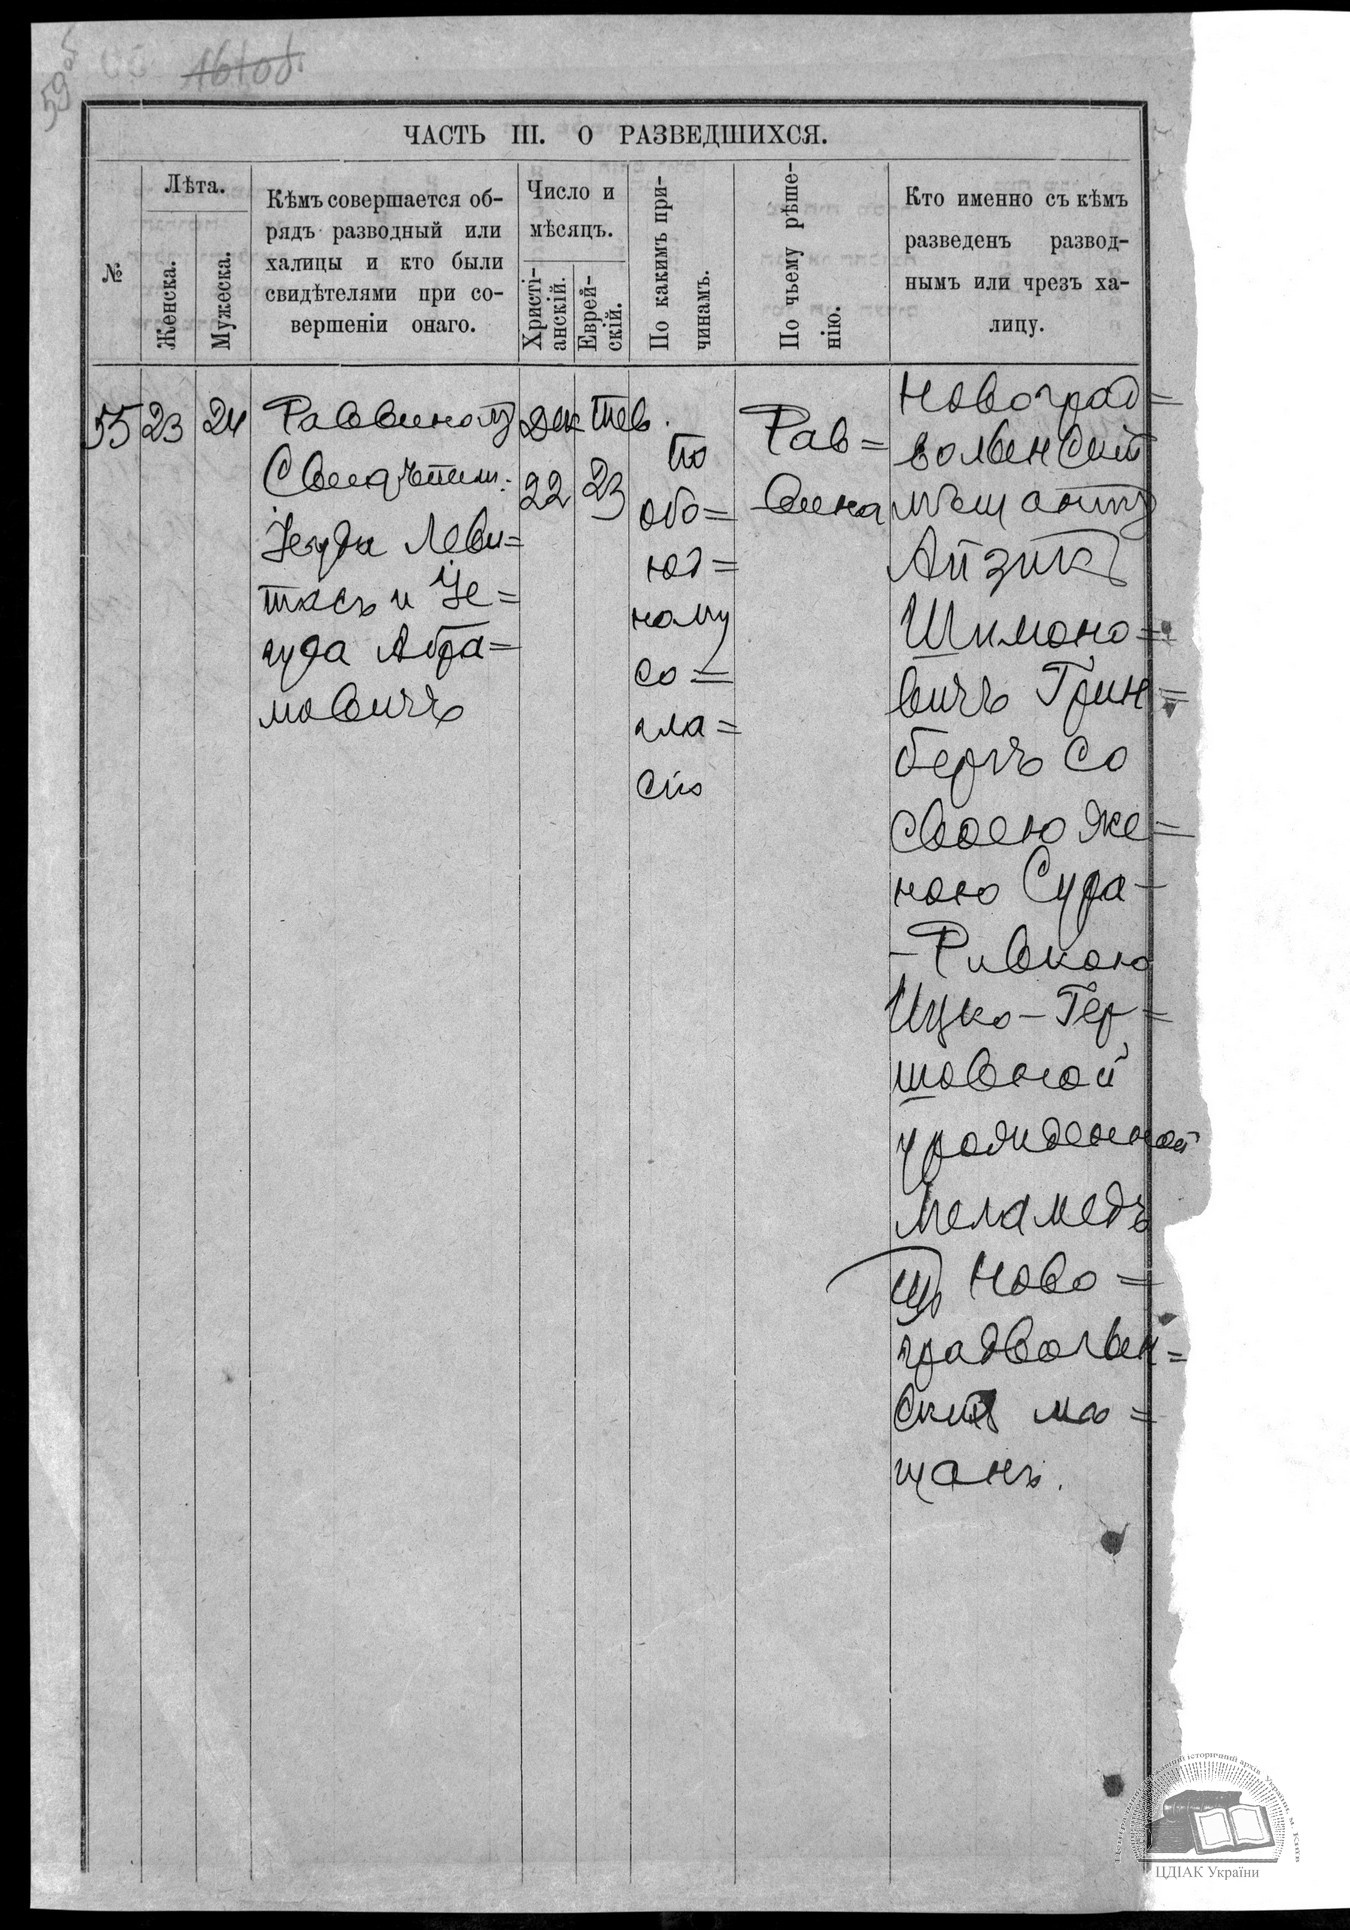 59 об
16 об.
ЧАСТЬ III. О РАЗВЕДШИХСЯ.
№
Лѣта.
Женска.
Мужеска.
Кѣмъ совершается об-
рядъ разводный или
халицы и кто были
свидѣтелями при со-
вершеніи онаго.
Число и
мѣсяцъ.
Христі-
анскій.
Еврей-
скій.
По какимъ при-
чинамъ.
По чьему рѣше-
нію.
Кто именно съ кѣмъ
разведенъ развод-
нымъ или чрезъ ха-
лицу.
55
23
24
Раввиномъ
Свидѣтели:
Іегуда Леви=
тасъ и Іе=
гуда Абра=
мовичъ
Дек
22
Тев.
23
По
обо=
юд=
ному
со=
гла=
сію
Рав=
вина
Новоград=
волынскій
мѣщанинъ
Айзикъ
Шимоно=
вичъ Грин=
бергъ со
своею же=
ною Сура-
-Ривкою
Ицко-Гер=
шовной
урожденной
Меламедъ
изъ Ново=
градволын=
скихъ мѣ=
щанъ.
Центральний державний історичний архів України, м. Київ
ЦДІАК України